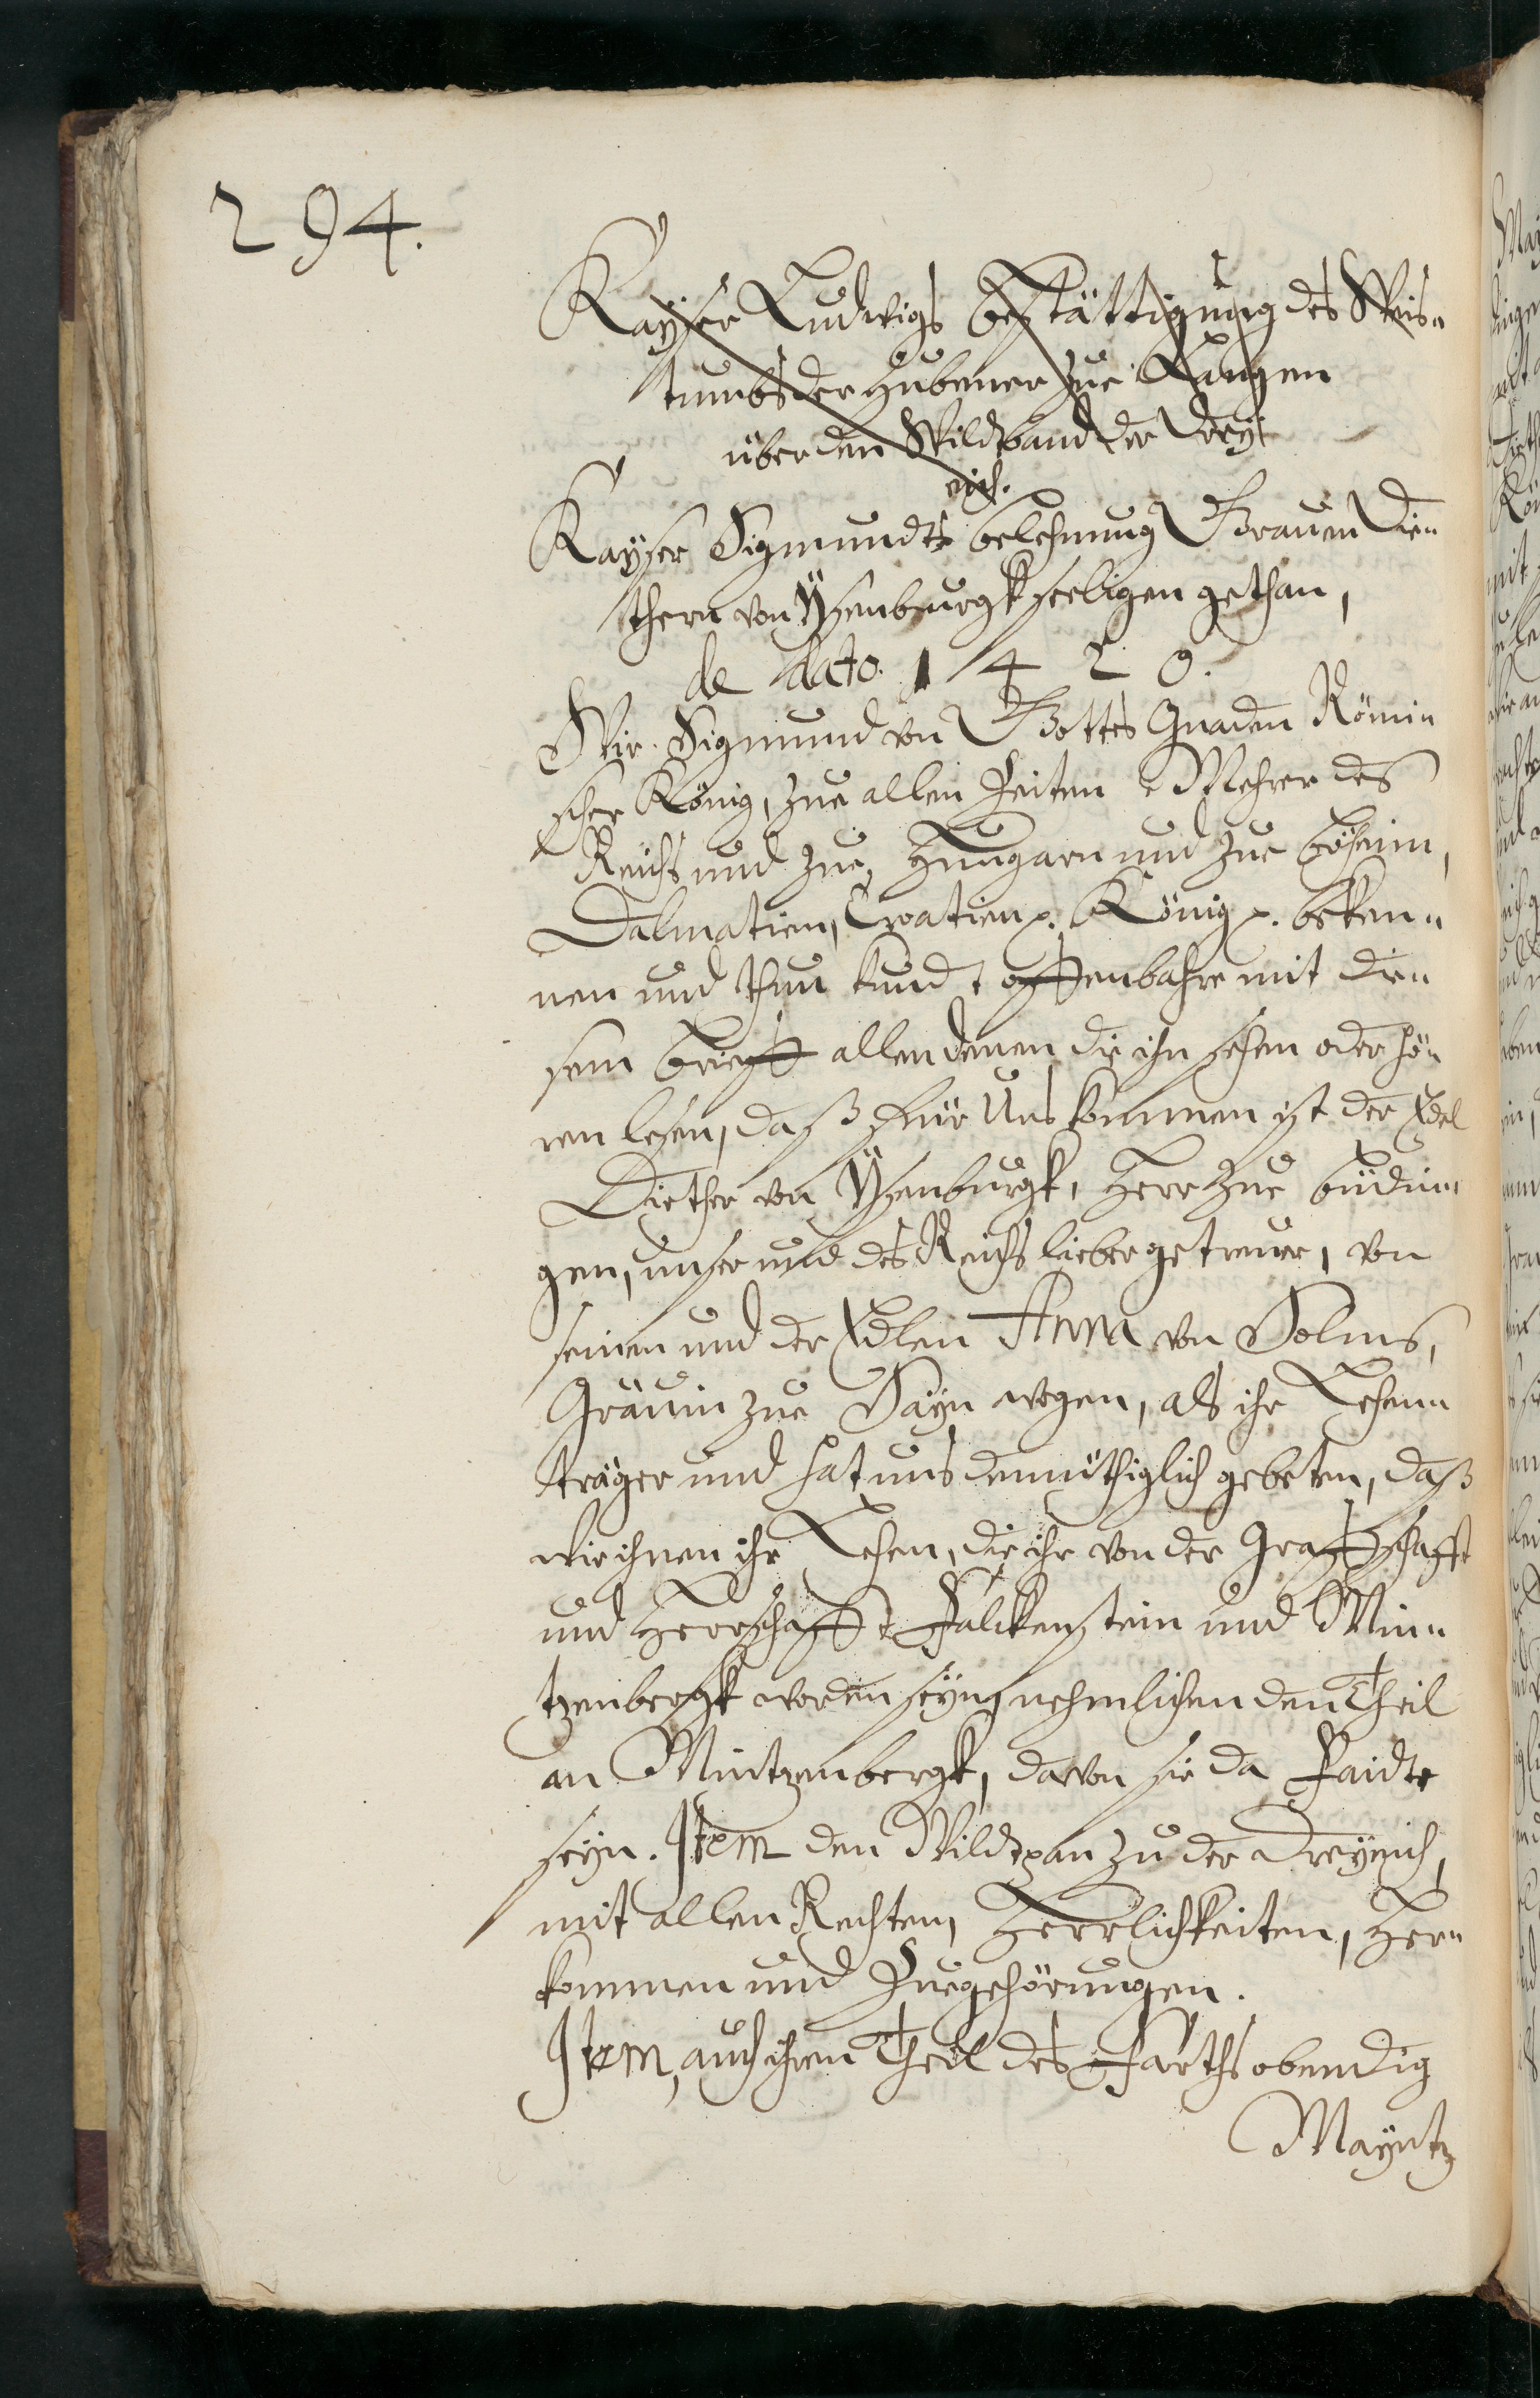 294.
Kayser Ludwigs bestättigung des Weis„
tumbs der Hubener zue Langen
über den Wildtband der Drey„
eich.
Kayser Sigmundts belehnung Grauen Die„
thern von Ÿsenburgk seeligen gethan,
de dato. 1420.
Wir Sigmund von Gottes Gnaden Römi„
scher König, zue allen Zeiten Mehrer des
Reichs und zue Hungarn und zue Böheim,
Dalmatien, Croatien p. König p. beken„
nen und thun kundt offenbahre mit die„
sem brieff allen denen die ihn sehen oder hö„
ren lesen, daß für Uns kommen ist der Edel
Diether von Ÿsenburgk, Herr zue büdin„
gen, unser und des Reichs lieber getreuer, von
seinen und der Edlen Anna von Solms,
Gräuin zue Sayn wegen, als ihr Lehen„
träger und hat uns demüthiglich gebeten, daß
wir ihnen ihr Lehen, die ihr von der Graffschafft
und Herrschafft Falckenstein und Min„
tzenbergk worden seyn, nehmlichen den Theil
an Mintzenbergk, davon sie da
seyn. Item den Wildtpan zu der Dreyeich,
mit allen Rechten, Herrlichkeiten, Her„
kommen und Zuegehörungen.
Item, auch ihren Theil des Farths obendig
Mayntz